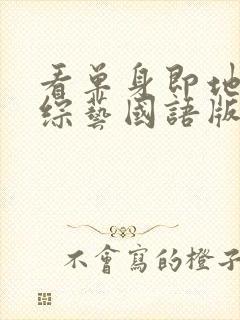 看单身即地
综艺國語版
不會寫的橙子